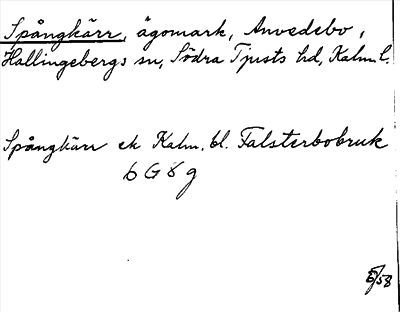 Spångkärr, ägomark, Anvedebo,
Hallingebergs sn, Södra Tjusts hd, Kalm. l.
Spångkärr ek Kalm. bl. Falsterbobruk
6 G 8 g
5/58